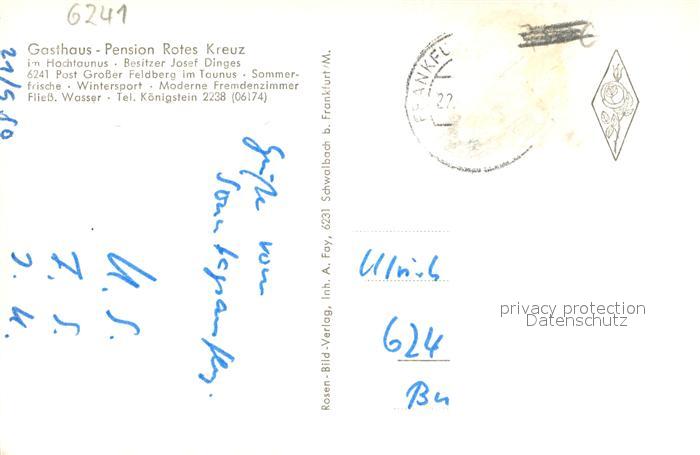 6241
Gasthaus - Pension Rotes Kreuz
im Hochtaunus · Besitzer Josef Dinges
6241 Post Großer Feldberg im Taunus · Sommer-
frische · Wintersport · Moderne Fremdenzimmer
Fließ. Wasser · Tel. Königstein 2238 (06174)
Grüße vom
Sonntagsausflug.
U. S.
F. S.
J. U.
Rosen-Bild-Verlag, Inh. A. Fay, 6231 Schwalbach b. Frankfurt/M.
FRANKFU
22.
Ulrich
624
privacy protection
Datenschutz